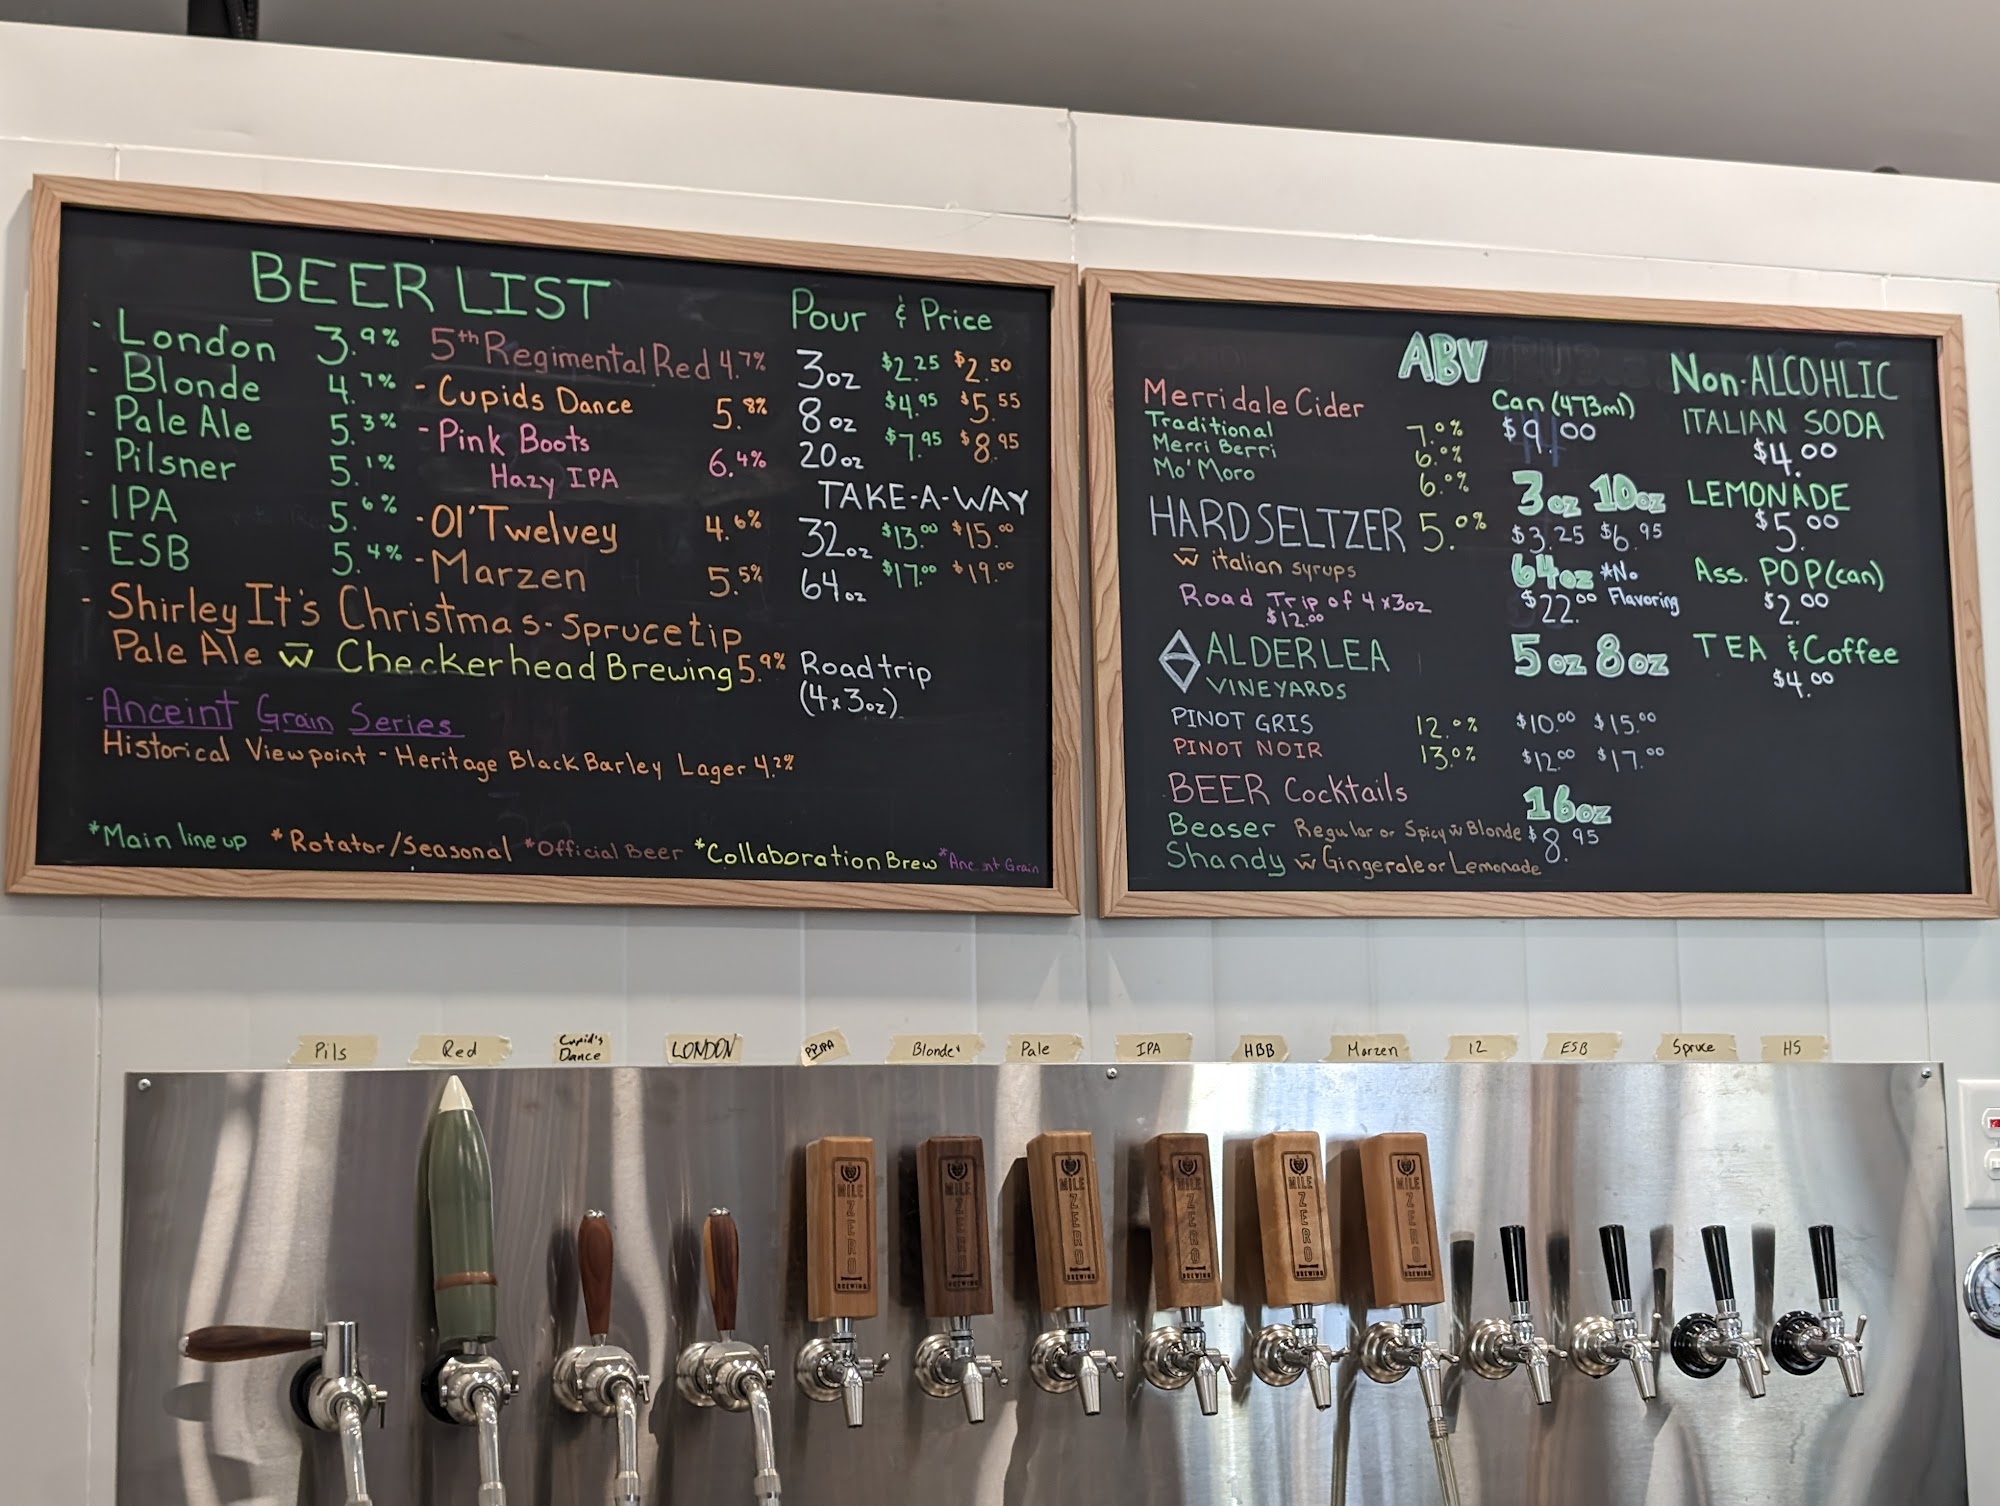 BEER LIST
- London 3.9%
- Blonde 4.7%
- Pale Ale 5.3%
- Pilsner 5.1%
- IPA 5.6%
- ESB 5.4%
5th Regimental Red 4.7%
- Cupids Dance 5.8%
- Pink Boots
Hazy IPA 6.4%
- Ol' Twelvey 4.6%
- Marzen 5.5%
- Shirley It's Christmas - Sprucetip
Pale Ale w̄ Checkerhead Brewing 5.9%
- Anceint Grain Series
Historical Viewpoint - Heritage Black Barley Lager 4.2%
Pour & Price
3oz $2.25 $2.50
8oz $4.95 $5.55
20oz $7.95 $8.95
TAKE-A-WAY
32oz $13.00 $15.00
64oz $17.00 $19.00
Roadtrip
(4x3oz)
*Main line up *Rotator/Seasonal *Official Beer *Collaboration Brew *Ancient Grain
ABV
Merridale Cider Can (473ml)
Traditional 7.0% $9.00
Merri Berri 6.0%
Mo' Moro 6.0%
3oz 10oz
HARDSELTZER 5.0% $3.25 $6.95
w̄ italian syrups
64oz *No
Flavoring
$22.00
Road Trip of 4x3oz
$12.00
ALDERLEA 5oz 8oz
VINEYARDS
PINOT GRIS 12.0% $10.00 $15.00
PINOT NOIR 13.0% $12.00 $17.00
BEER Cocktails 16oz
Beaser Regular or Spicy w̄ Blonde $8.95
Shandy w̄ Gingerale or Lemonade
Non-ALCOHLIC
ITALIAN SODA
$4.00
LEMONADE
$5.00
Ass. POP (can)
$2.00
TEA & Coffee
$4.00
Pils
Red
Cupid's
Dance
LONDON
Blonde
Pale
IPA
HBB
Marzen
12
ESB
Spruce
HS
MILE ZERO BREWING
MILE ZERO BREWING
MILE ZERO BREWING
MILE ZERO BREWING
MILE ZERO BREWING
MILE ZERO BREWING